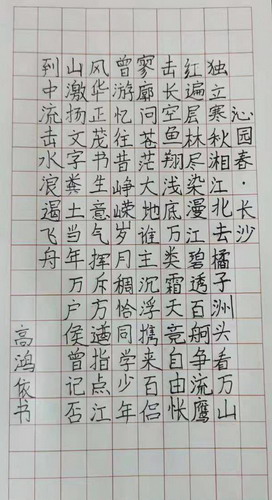 沁园春·长沙
独立寒秋湘江北去橘子洲头看万山
红遍层林尽染漫江碧透百舸争流鹰
击长空鱼翔浅底万类霜天竞自由怅
寥廓问苍茫大地谁主沉浮携来百侣
曾游忆往昔峥嵘岁月稠恰同学少年
风华正茂书生意气挥斥方遒指点江
山激扬文字粪土当年万户侯曾记否
到中流击水浪遏飞舟
高鸿依书